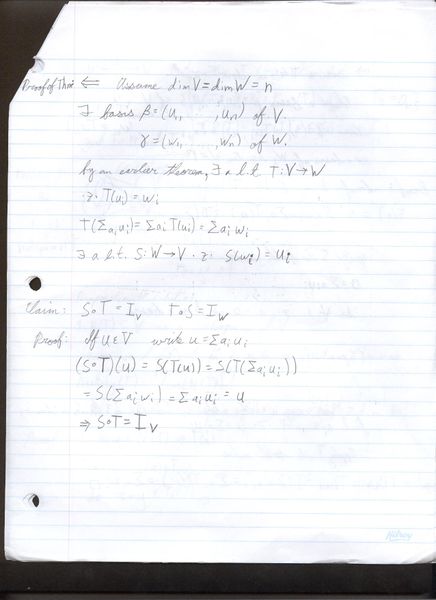 Proof of Thm: ⇐ Assume dim V = dim W = n
∃ basis β = (u₁, , uₙ) of V.
γ = (w₁, , wₙ) of W.
by an earlier theorem, ∃ a l.t. T: V → W
·ᴣ· T(uᵢ) = wᵢ
T(Σaᵢuᵢ) = Σaᵢ T(uᵢ) = Σaᵢ wᵢ
∃ a l.t. S: W → V ·ᴣ: S(wᵢ) = uᵢ
Claim: S∘T = I_V T∘S = I_W
Proof: If u ∈ V write u = Σaᵢuᵢ
(S∘T)(u) = S(T(u)) = S(T(Σaᵢuᵢ))
= S(Σaᵢwᵢ) = Σaᵢuᵢ = u
⇒ S∘T = I_V
Hilroy